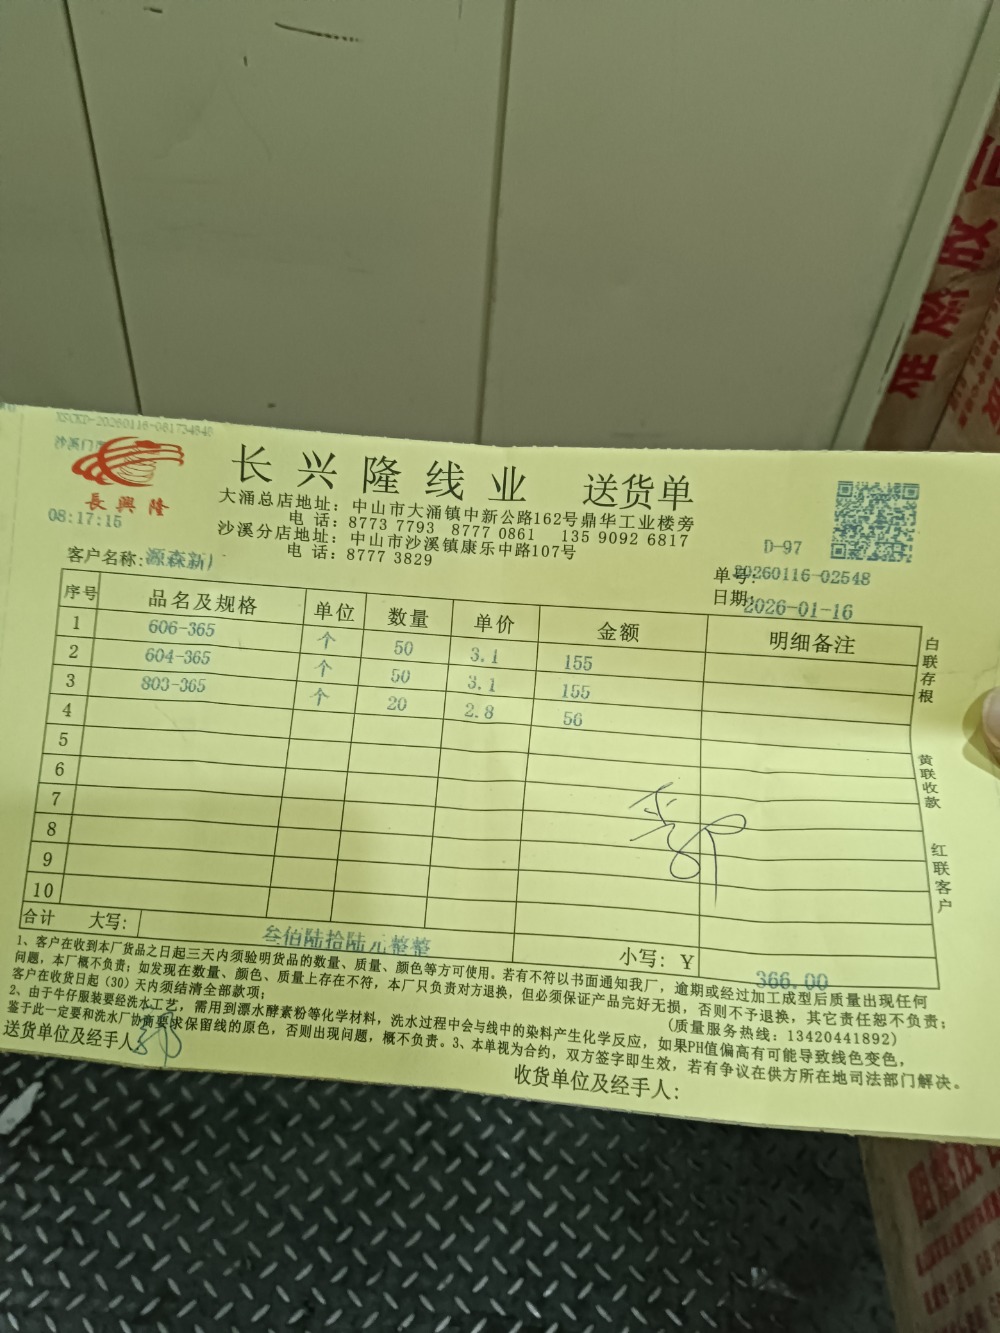 XSCKD-20260116-081734840
沙溪门
長興隆
08:17:15
长兴隆线业 送货单
大涌总店地址：中山市大涌镇中新公路162号鼎华工业楼旁
电 话：8773 7793 8777 0861 135 9092 6817
沙溪分店地址：中山市沙溪镇康乐中路107号
电 话：8777 3829
D-97
客户名称:源森新厂
单号:20260116-02548
日期:2026-01-16
序号 品名及规格 单位 数量 单价 金额 明细备注
1 606-365 个 50 3.1 155
2 604-365 个 50 3.1 155
3 803-365 个 20 2.8 56
4
5
6
7
8
9
10
合计 大写: 叁佰陆拾陆元整整 小写: Y 366.00
白联存根 黄联收款 红联客户
1、客户在收到本厂货品之日起三天内须验明货品的数量、质量、颜色等方可使用。若有不符以书面通知我厂，逾期或经过加工成型后质量出现任何
问题，本厂概不负责；如发现在数量、颜色、质量上存在不符，本厂只负责对方退换，但必须保证产品完好无损，否则不予退换，其它责任恕不负责；
客户在收货日起（30）天内须结清全部款项；
(质量服务热线：13420441892)
2、由于牛仔服装要经洗水工艺，需用到漂水酵素粉等化学材料，洗水过程中会与线中的染料产生化学反应，如果PH值偏高有可能导致线色变色，
鉴于此一定要和洗水厂协商要求保留线的原色，否则出现问题，概不负责。3、本单视为合约，双方签字即生效，若有争议在供方所在地司法部门解决。
送货单位及经手人:
收货单位及经手人：
难燃胶
阻燃胶